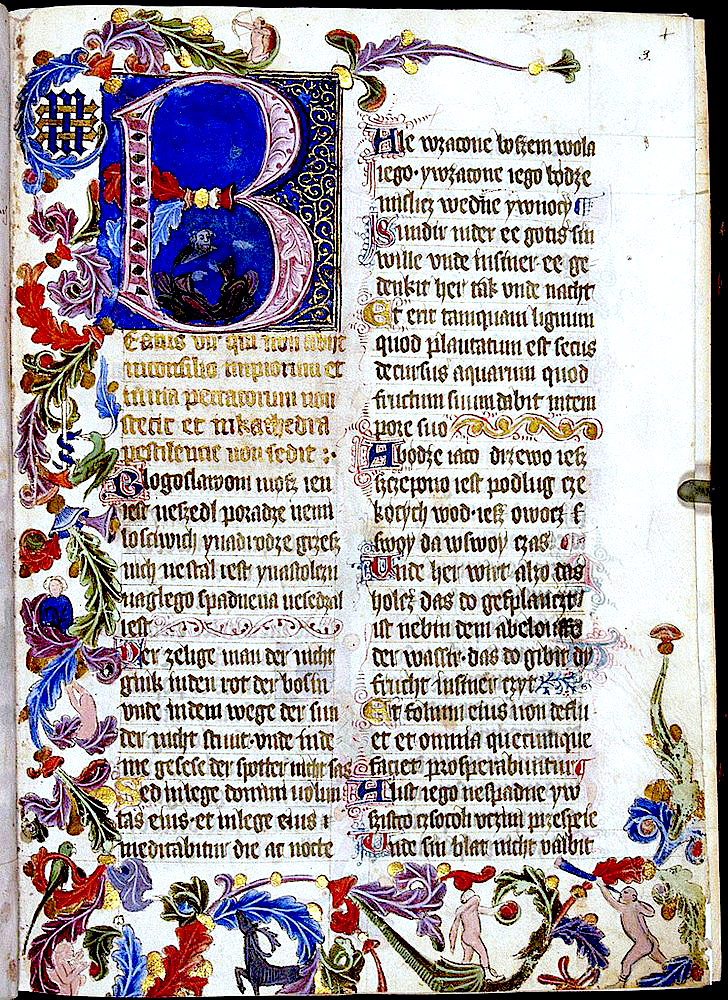 3.
B
Eatus vir qui non abijt
in consilio impiorum et
in uia peccatorum non
stetit et in kathedra
pestilencie non sedit :·
Blogoslawoni møsz ien
iest neszedl poradze nemi
losciwich ynadrodze grzesz
nich nestal iest ynastolczu
naglego spadnena nesedzal
iest
Der zelige man der nicht
gink in den rot der bosin
vnde in dem wege der sun
der nicht stunt· vnde in de
me gesese der spotter nicht sas
Sed in lege domini uolun
tas eius· et in lege eius
meditabitur die ac nocte
Ale wzacone boszem wola
iego· ywzacone iego bodze
mislicz wedne ywnocy
Sundir in der ee gotis sin
wille vnde in siner ee ge
denkit her tak vnde nacht
Et erit tamquam lignum
quod plantatum est secus
decursus aquarum quod
fructum suum dabit in tem
pore suo
Abodze iaco drzewo iesz
szczepono iest podlug cze
kocych wod· iesz owocz s
swoy da wswoy czas
Unde her wirt alzo das
holcz das do gesplanczt
ist nebin dem abelouffe
der wassir· das do gibit dy
frucht in siner czyt
Et folium eius non deflu
et et omnia quecumque
faciet prosperabuntur
A list iego nespadne yw
szistco czsocoli vczini przespeie
Unde sin blat nicht valbit